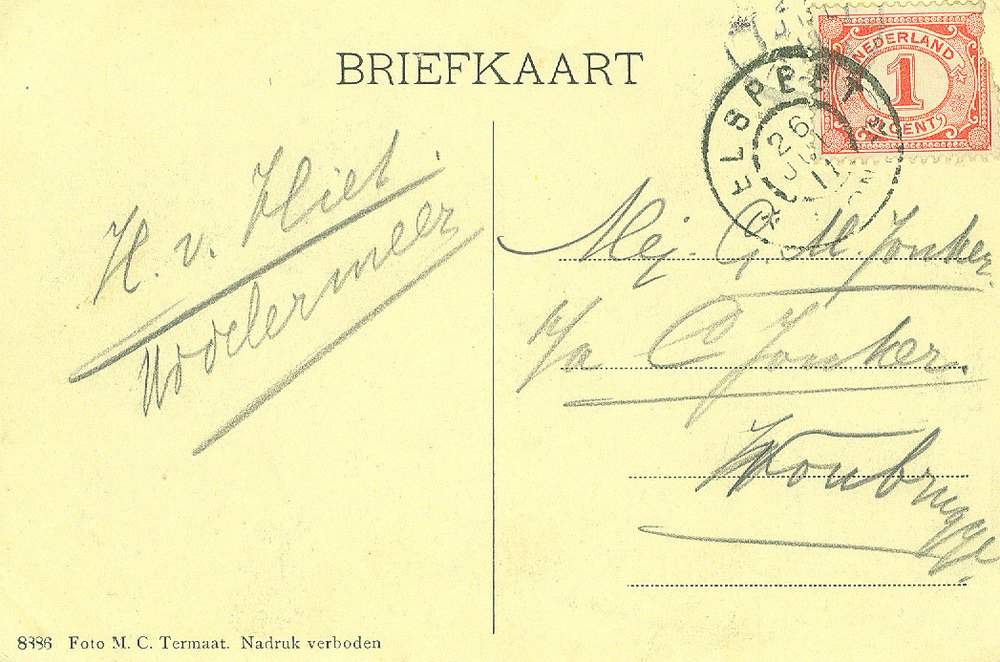 BRIEFKAART
NEDERLAND
1
CENT
ELSPEET
26
11
H. v. Vliet.
Mej. G. M. Jonker
p/a C Jonker.
Woubrugge.
8886 Foto M. C. Termaat. Nadruk verboden